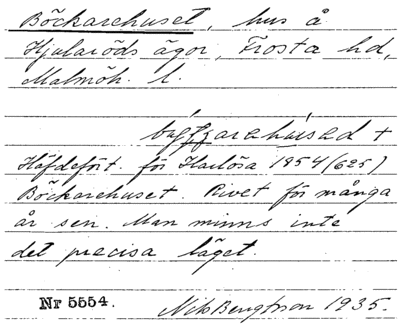 Böckarehuset, hus å
Hjularöds ägor, Frosta hd,
Malmöh. l.
Häfdefört. för Harlösa 1854 (625)
Böckarehuset. Rivet för många
år sen. Man minns inte
det precisa läget.
Nr 5554. Nils Bengtsson 1935.